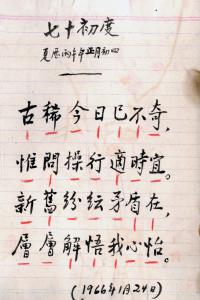 七十初度
夏历丙午年正月初四
古稀今日已不奇，
惟问操行適時宜。
新舊紛紜矛盾在，
層層解悟我心怡。
（1966年1月24日）